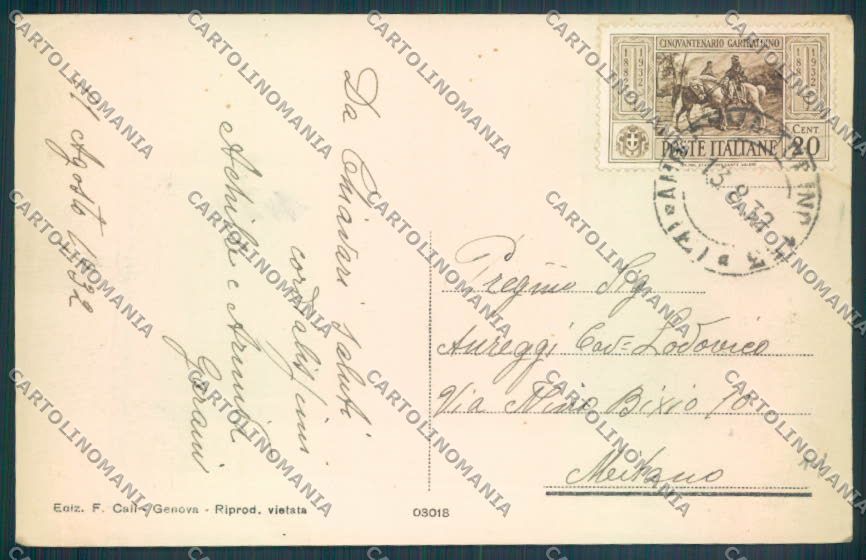 CINQVANTENARIO GARIBALDINO
1882
1932
POSTE ITALIANE
CENT 20
13.8.32
11 Agosto 1932
Da Chiavari saluti
cordialissimi
Achille e
Pregmo Sig.
Aureggi Cav= Lodovico
Via Nino Bixio 10
Milano
Ediz. F. Cali - Genova - Riprod. vietata
03018
CARTOLINOMANIA